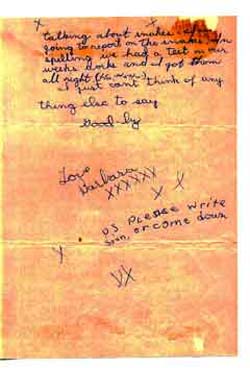 X
talking about snakes. I am
going to report on the snake. In
spelling we had a test on our
weeks work and I got them
all right
I just can't think of any
thing else to say
Good-by
Love
Barbara
XXXXXX
X X
P.S. PLeAse write
soon, or come down
X
XX